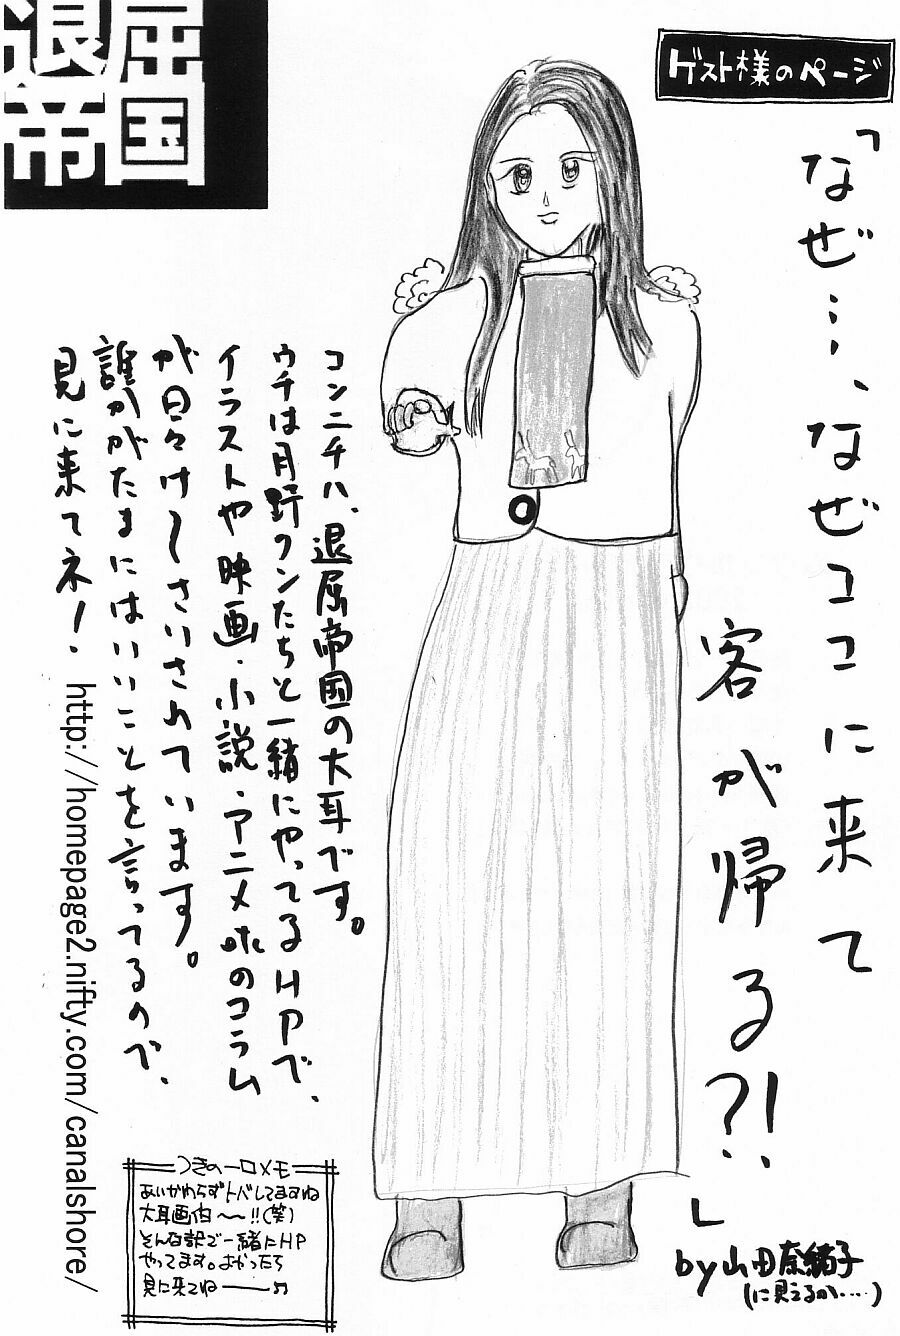 退屈
帝国
ゲスト様のページ
「なぜ…、なぜココに来て
客が帰る?!」
by山田奈緒子
(に見えるか・・・・)
コンニチハ、退屈帝国の大耳です。
ウチは月野クンたちと一緒にやってるHPで、
イラストや映画・小説・アニメetcのコラム
が日々け〜さいされています。
誰かがたまにはいいことを言ってるので、
見に来てネ!
http://homepage2.nifty.com/canalshore/
つきの一口メモ
あいかわらずトバしてますね
大耳画伯〜〜!!(笑)
そんな訳で一緒にHP
やってます。よかったら
見に来てね――♫